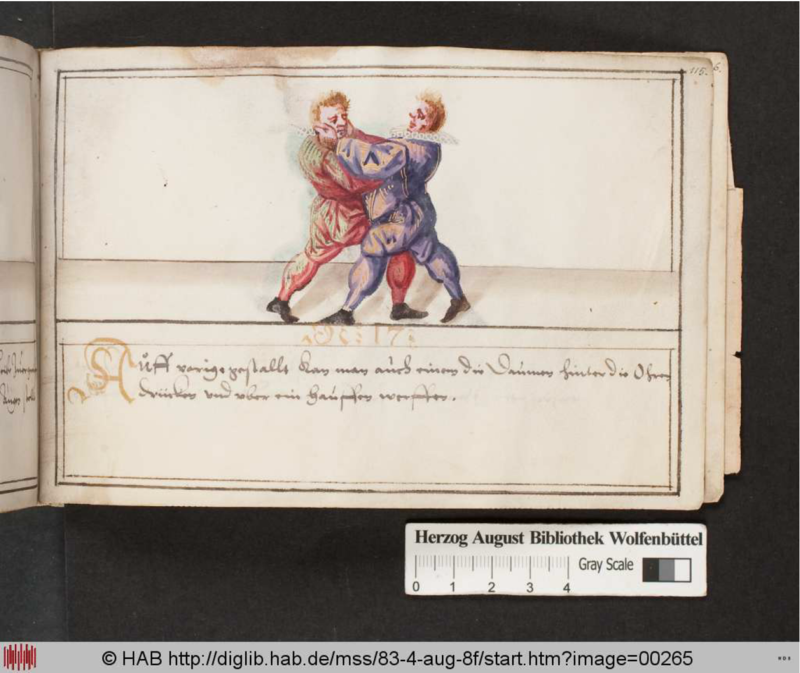 115.
N: 17:
Auff vorige gestallt kan man auch einem die Daumen hinter die Ohren
drücken vnd vber ein hauffen werffen.
Herzog August Bibliothek Wolfenbüttel
Gray Scale
0 1 2 3 4
© HAB http://diglib.hab.de/mss/83-4-aug-8f/start.htm?image=00265